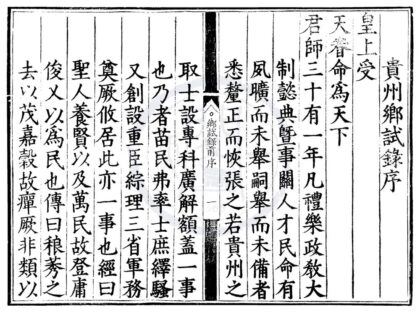 貴州鄉試錄序
皇上受
天眷命為天下
君師三十有一年凡禮樂政教大
制懿典暨事關人才民命有
夙曠而未舉嗣舉而未備者
悉釐正而恢張之若貴州之
鄉試錄前序
一
取士設專科廣解額蓋一事
也乃者苗民弗率士庶繹騷
又創設重臣綜理三省軍務
奠厥攸居此亦一事也經曰
聖人養賢以及萬民故登庸
俊乂以為民也傳曰稂莠之
去以茂嘉穀故癉厥非類以